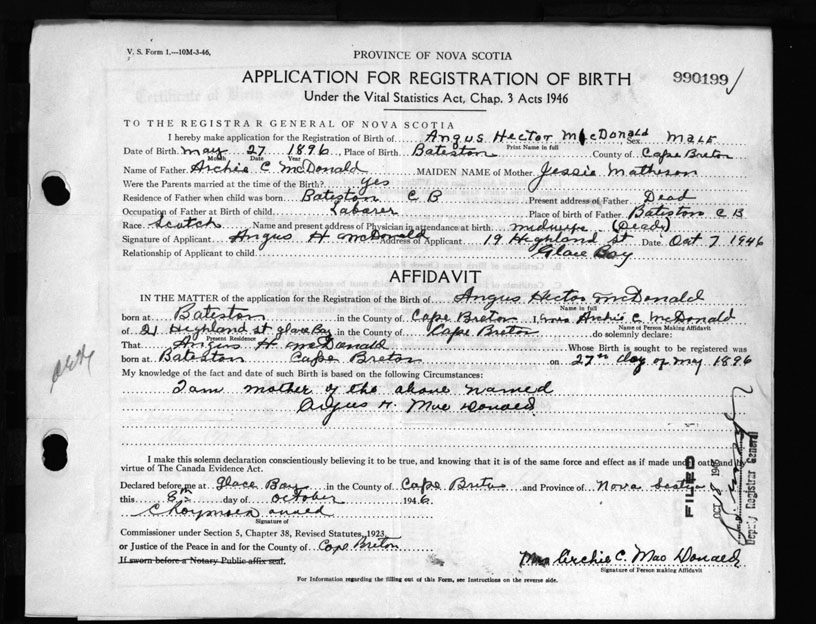 V. S. Form 1.—10M-3-46,
PROVINCE OF NOVA SCOTIA
APPLICATION FOR REGISTRATION OF BIRTH
990199
Under the Vital Statistics Act, Chap. 3 Acts 1946
TO THE REGISTRAR GENERAL OF NOVA SCOTIA
I hereby make application for the Registration of Birth of Angus Hector McDonald Sex Male
Print Name in full
Date of Birth May 27 1896 Place of Birth Bateston County of Cape Breton
Month Date Year
Name of Father Archie C McDonald MAIDEN NAME of Mother Jessie Matheson
Were the Parents married at the time of the Birth? yes
Residence of Father when child was born Bateston C B Present address of Father Dead
Occupation of Father at Birth of child Labarer Place of birth of Father Bateston C B
Race Scotch Name and present address of Physician in attendance at birth midwife (Dead)
Signature of Applicant Angus H McDonald Address of Applicant 19 Highland St Date Oct 7 1946
Relationship of Applicant to child Glace Bay
AFFIDAVIT
IN THE MATTER of the application for the Registration of the Birth of Angus Hector McDonald
Name in full
born at Bateston in the County of Cape Breton I, Mrs Archie C. McDonald
Name of Person Making Affidavit
of 21 Highland St Glace Bay in the County of Cape Breton do solemnly declare:
Present Residence
That Angus H. McDonald Whose Birth is sought to be registered was
born at Bateston Cape Breton on 27th day of May 1896
My knowledge of the fact and date of such Birth is based on the following Circumstances:
I am mother of the above named
Angus H. Mac Donald.
I make this solemn declaration conscientiously believing it to be true, and knowing that it is of the same force and effect as if made under oath and in
virtue of The Canada Evidence Act.
Declared before me at Glace Bay in the County of Cape Breton and Province of Nova Scotia
this 8th day of October 1946.
Signature of
Commissioner under Section 5, Chapter 38, Revised Statutes, 1923
or Justice of the Peace in and for the County of Cape Breton
If sworn before a Notary Public affix seal.
Mrs Archie C. Mac Donald
Signature of Person making Affidavit
For Information regarding the filling out of this Form, see Instructions on the reverse side.
FILED
Deputy Registrar General